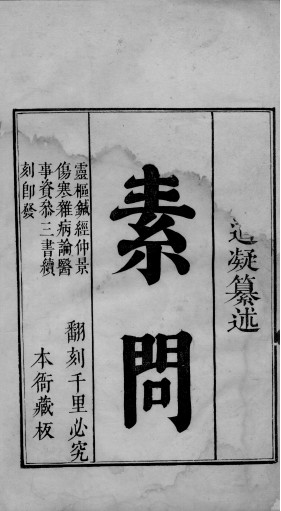 凝纂述
素問
靈樞鍼經仲景
傷寒雜病論醫
事資叅三書續
刻卽發
翻刻千里必究
本衙藏板